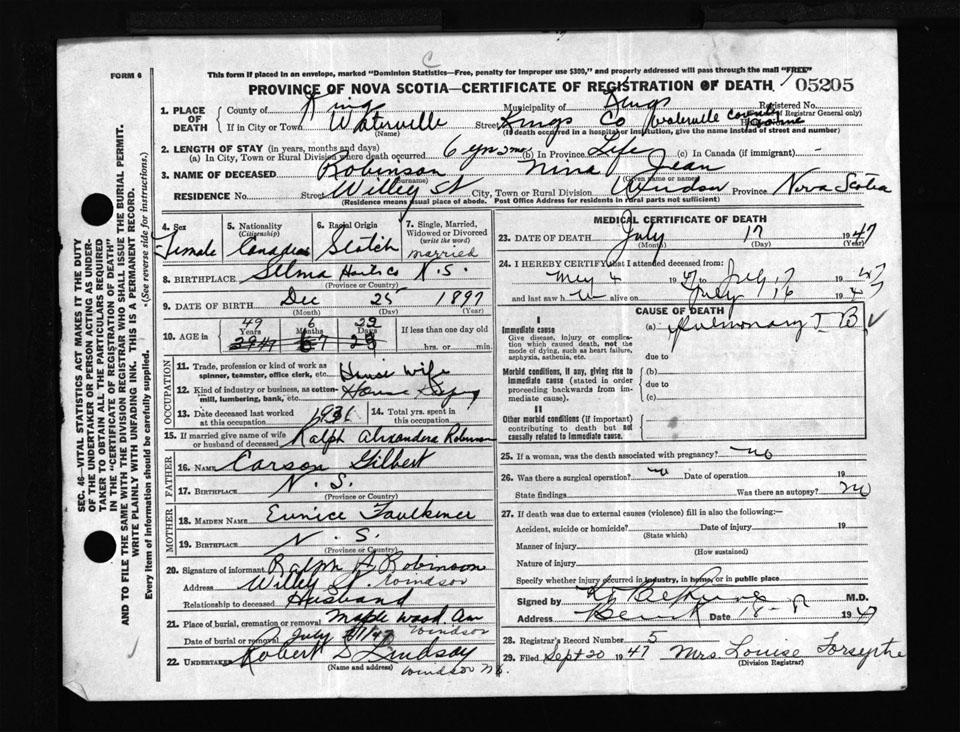 C
FORM 6
This form if placed in an envelope, marked "Dominion Statistics—Free, penalty for improper use $300," and properly addressed will pass through the mail "FREE"
PROVINCE OF NOVA SCOTIA—CERTIFICATE OF REGISTRATION OF DEATH
05205
1. PLACE OF DEATH
County of Kings
Municipality of Kings
Registered No.
(of Registrar General only)
If in City or Town Waterville
(Name)
Street Kings Co Waterville County Home
(If death occurred in a hospital or institution, give the name instead of street and number)
2. LENGTH OF STAY (in years, months and days)
(a) In City, Town or Rural Division where death occurred 6 yrs 5 mo (b) In Province Life (c) In Canada (if immigrant) -
3. NAME OF DECEASED Robinson Nina Jean
(Surname) (Given name or names)
RESIDENCE No. Street Willey St City, Town or Rural Division Windsor Province Nova Scotia
(Residence means usual place of abode. Post Office Address for residents in rural parts not sufficient)
4. Sex
Female
5. Nationality (Citizenship)
Canadian
6. Racial Origin
Scotch
7. Single, Married, Widowed or Divorced (write the word)
married
8. BIRTHPLACE Selma Hants Co N.S.
(Province or Country)
9. DATE OF BIRTH Dec 25 1897
(Month) (Day) (Year)
10. AGE in
49 6 22
Years Months Days
If less than one day old
hrs. or min.
OCCUPATION
11. Trade, profession or kind of work as spinner, teamster, office clerk, etc. House wife
12. Kind of industry or business, as cotton-mill, lumbering, bank, etc. House Keeping
13. Date deceased last worked at this occupation 1936
14. Total yrs. spent in this occupation
15. If married give name of wife or husband of deceased Ralph Alexandera Robinson
FATHER
16. NAME Carson Gilbert
17. BIRTHPLACE N.S.
(Province or Country)
MOTHER
18. MAIDEN NAME Eunice Faulkiner
19. BIRTHPLACE N.S.
(Province or Country)
20. Signature of informant Ralph A Robinson
Address Willey St. Windsor
Relationship to deceased Husband
21. Place of burial, cremation or removal Maple wood Cem
Windsor
Date of burial or removal July 47
22. UNDERTAKER Robert D Lindsay
(Name and address)
Windsor N.S.
MEDICAL CERTIFICATE OF DEATH
23. DATE OF DEATH July 17 1947
(Month) (Day) (Year)
24. I HEREBY CERTIFY that I attended deceased from:
May 4 1947 to July 17 1947
and last saw h er alive on July 16 1947
CAUSE OF DEATH
I
Immediate cause
Give disease, injury or complication which caused death, not the mode of dying, such as heart failure, asphyxia, asthenia, etc.
(a) Pulmonary T B
due to
Morbid conditions, if any, giving rise to immediate cause (stated in order proceeding backwards from immediate cause).
(b)
due to
(c)
II
Other morbid conditions (if important) contributing to death but not causally related to immediate cause.
25. If a woman, was the death associated with pregnancy? no
26. Was there a surgical operation? no Date of operation 19
State findings Was there an autopsy? no
27. If death was due to external causes (violence) fill in also the following:—
Accident, suicide or homicide? Date of injury 19
(State which)
Manner of injury
(How sustained)
Nature of injury
Specify whether injury occurred in industry, in home, or in public place
Signed by M.D.
Address Date 1947
28. Registrar's Record Number 5
29. Filed Sept 20 1947 Mrs. Louise Forsythe
(Division Registrar)
SEC. 46—VITAL STATISTICS ACT MAKES IT THE DUTY
OF THE UNDERTAKER OR PERSON ACTING AS UNDERTAKER TO OBTAIN ALL THE PARTICULARS REQUIRED
IN THE "CERTIFICATE OF REGISTRATION OF DEATH"
AND TO FILE THE SAME WITH THE DIVISION REGISTRAR WHO SHALL ISSUE THE BURIAL PERMIT.
WRITE PLAINLY WITH UNFADING INK. THIS IS A PERMANENT RECORD.
Every item of information should be carefully supplied. (See reverse side for instructions.)